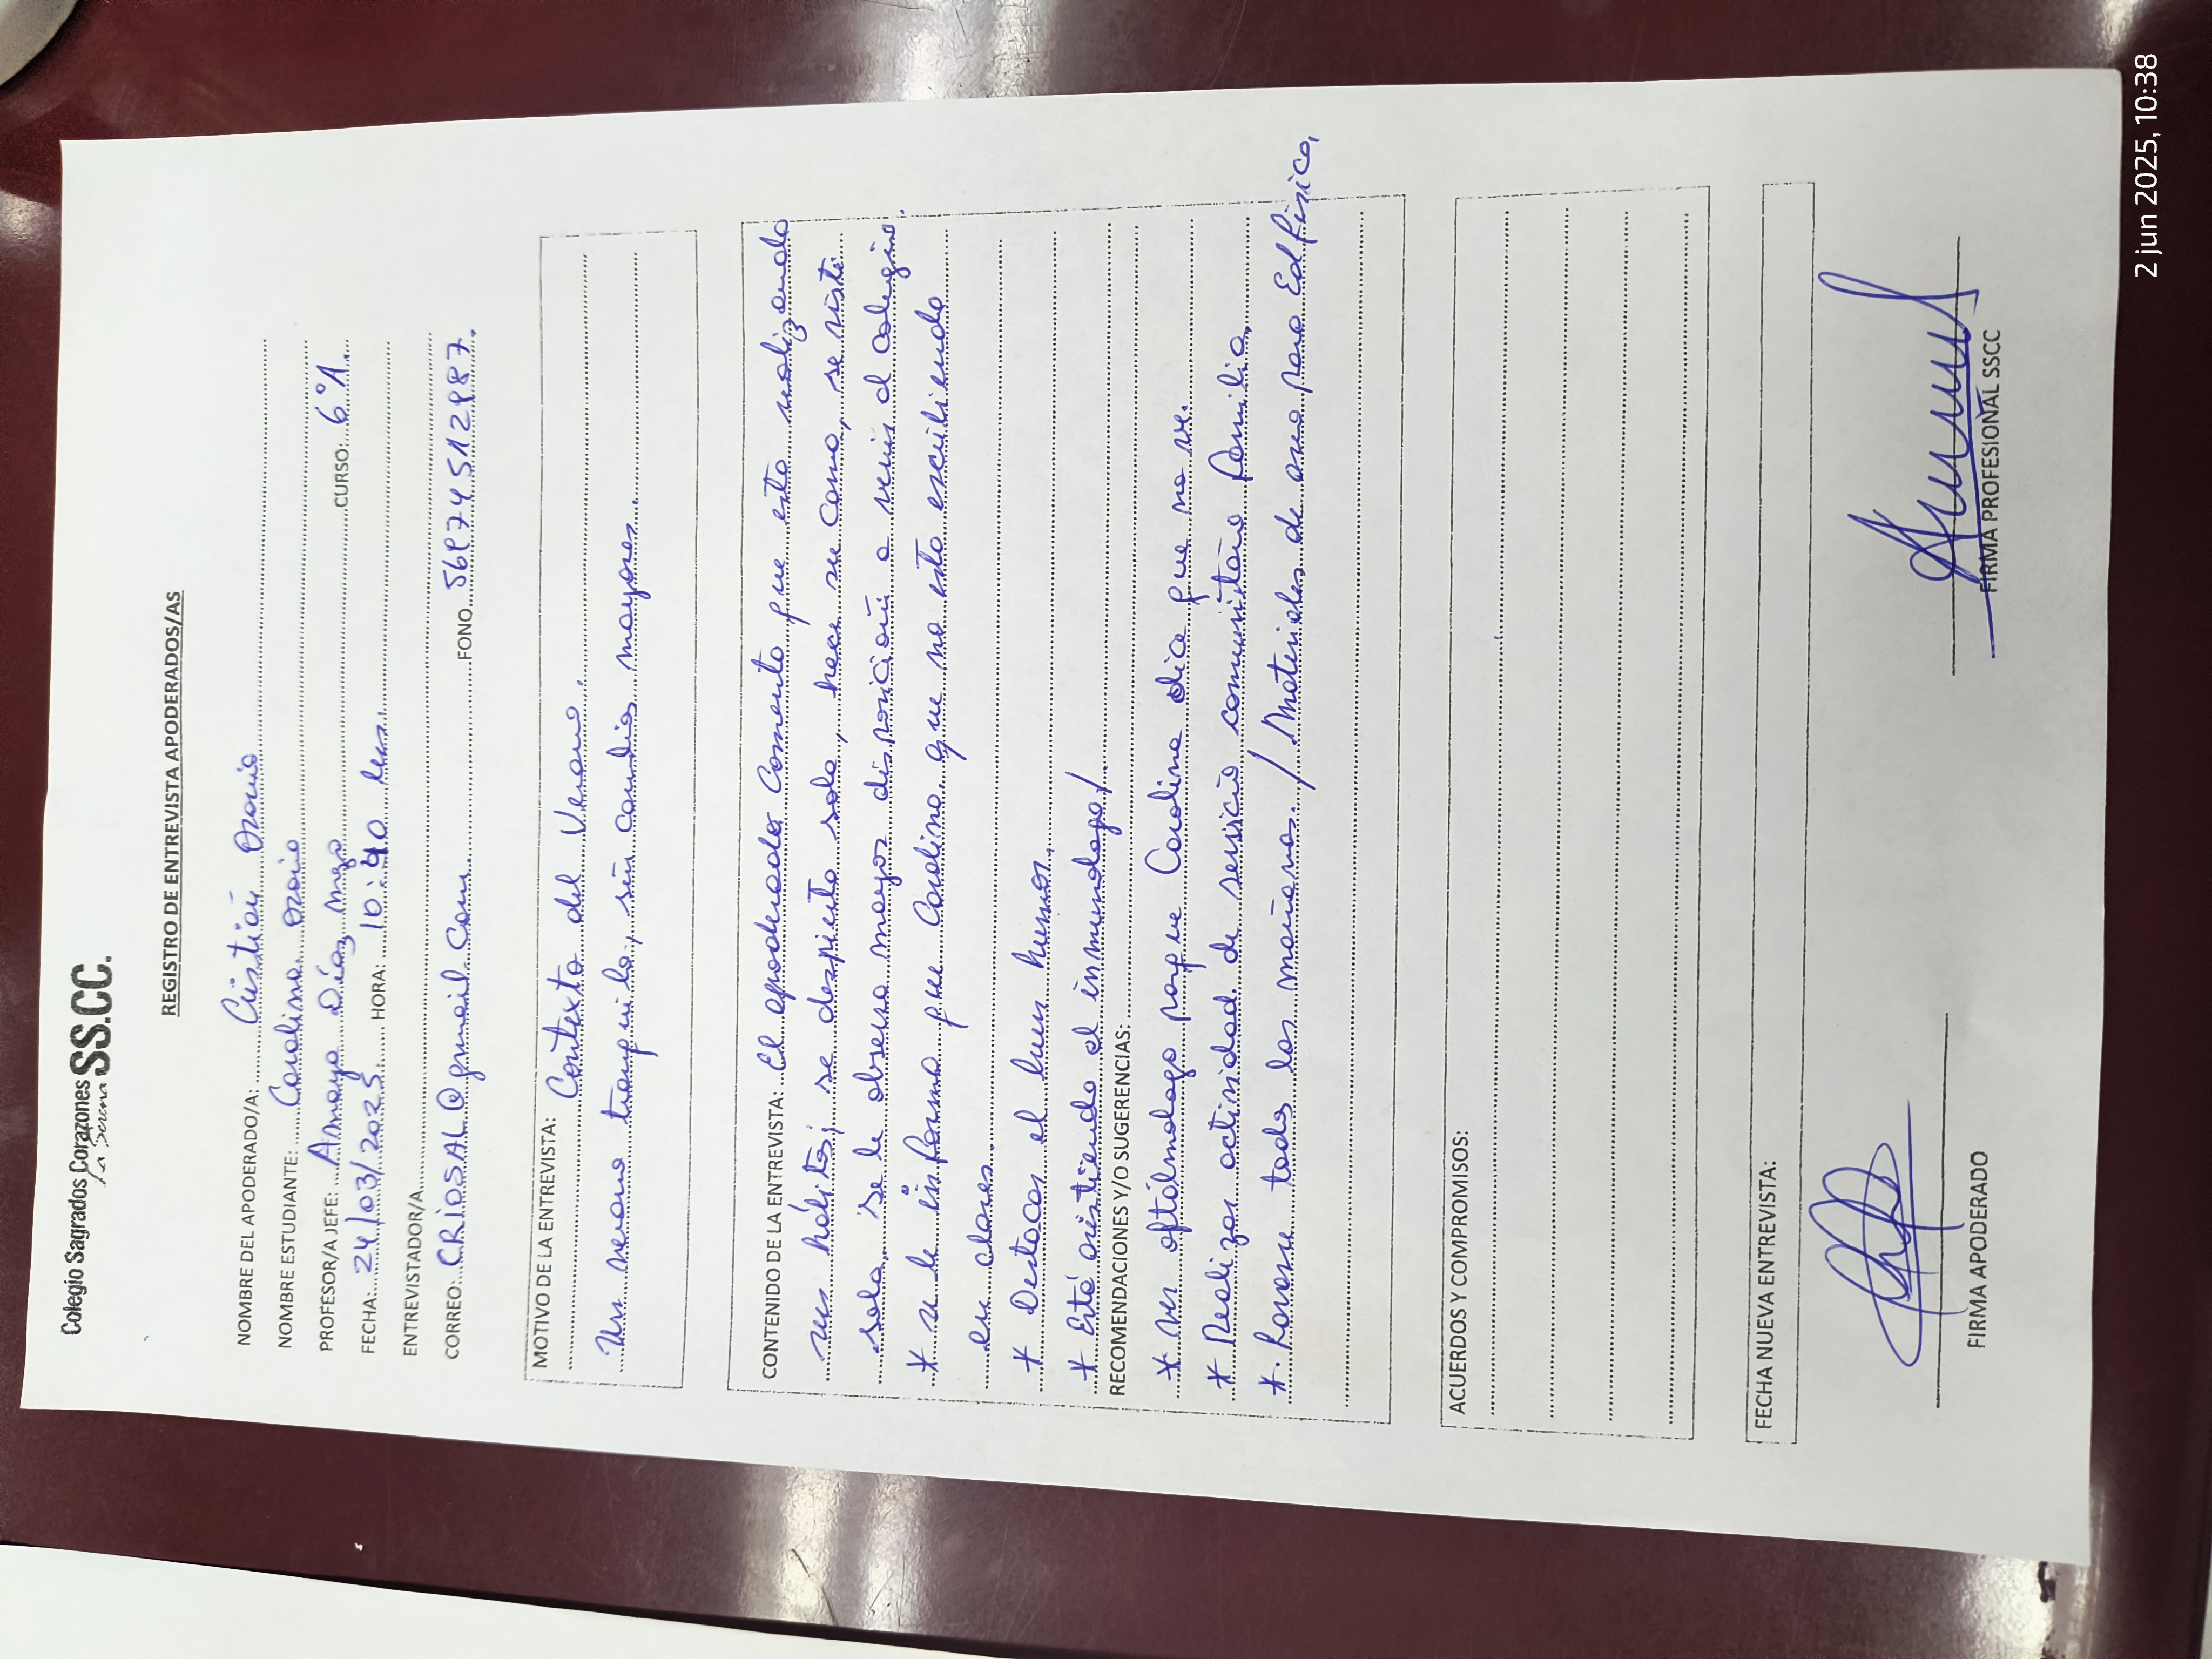 Colegio Sagrados Corazones SS.CC.
La Serena
REGISTRO DE ENTREVISTA APODERADOS/AS
NOMBRE DEL APODERADO/A: Cristián Osorio
NOMBRE ESTUDIANTE: Carolina Osorio
PROFESOR/A JEFE: Amaya Díaz Meza CURSO: 6°A
FECHA: 24/03/2025 HORA: 10:40 hrs.
ENTREVISTADOR/A
CORREO: CRIOSAL@gmail.com FONO
MOTIVO DE LA ENTREVISTA: Contexto del Verano.
Un verano tranquilo, sin cambios mayores.
CONTENIDO DE LA ENTREVISTA: El apoderado comenta que esta realizando
sus hábitos, se despierta sola, hace su cama, se viste
sola, se le observa mayor disposición a venir al colegio.
* se le informa que Carolina que no esta escribiendo
en clases.
* Destacar el buen humor.
* Está asistiendo al inmunologo/
RECOMENDACIONES Y/O SUGERENCIAS:
* ver oftálmologo porque Carolina dice que no ve.
* Realizar actividad de servicio comunitario familia.
* Ponerse todas las mañanas. / Materiales de aseo para Ed física,
ACUERDOS Y COMPROMISOS:
FECHA NUEVA ENTREVISTA:
FIRMA APODERADO
FIRMA PROFESIONAL SSCC
2 jun 2025, 10:38